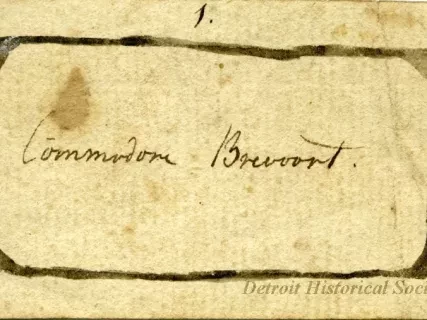 1.
Commodore Brevoort.
Detroit Historical Soci